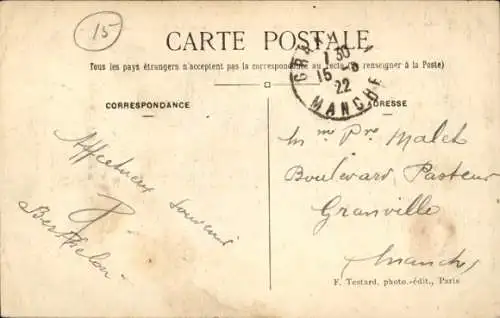 15
CARTE POSTALE
Tous les pays étrangers n'acceptent pas la correspondance au recto (Se renseigner à la Poste)
GRAN
1 30
15 - 8
22
MANCHE
CORRESPONDANCE
ADRESSE
Affectueux souvenir
Berthelon
Mme Pre Malet
Boulevard Pasteur
Granville
Manche
F. Testard, photo.-édit., Paris